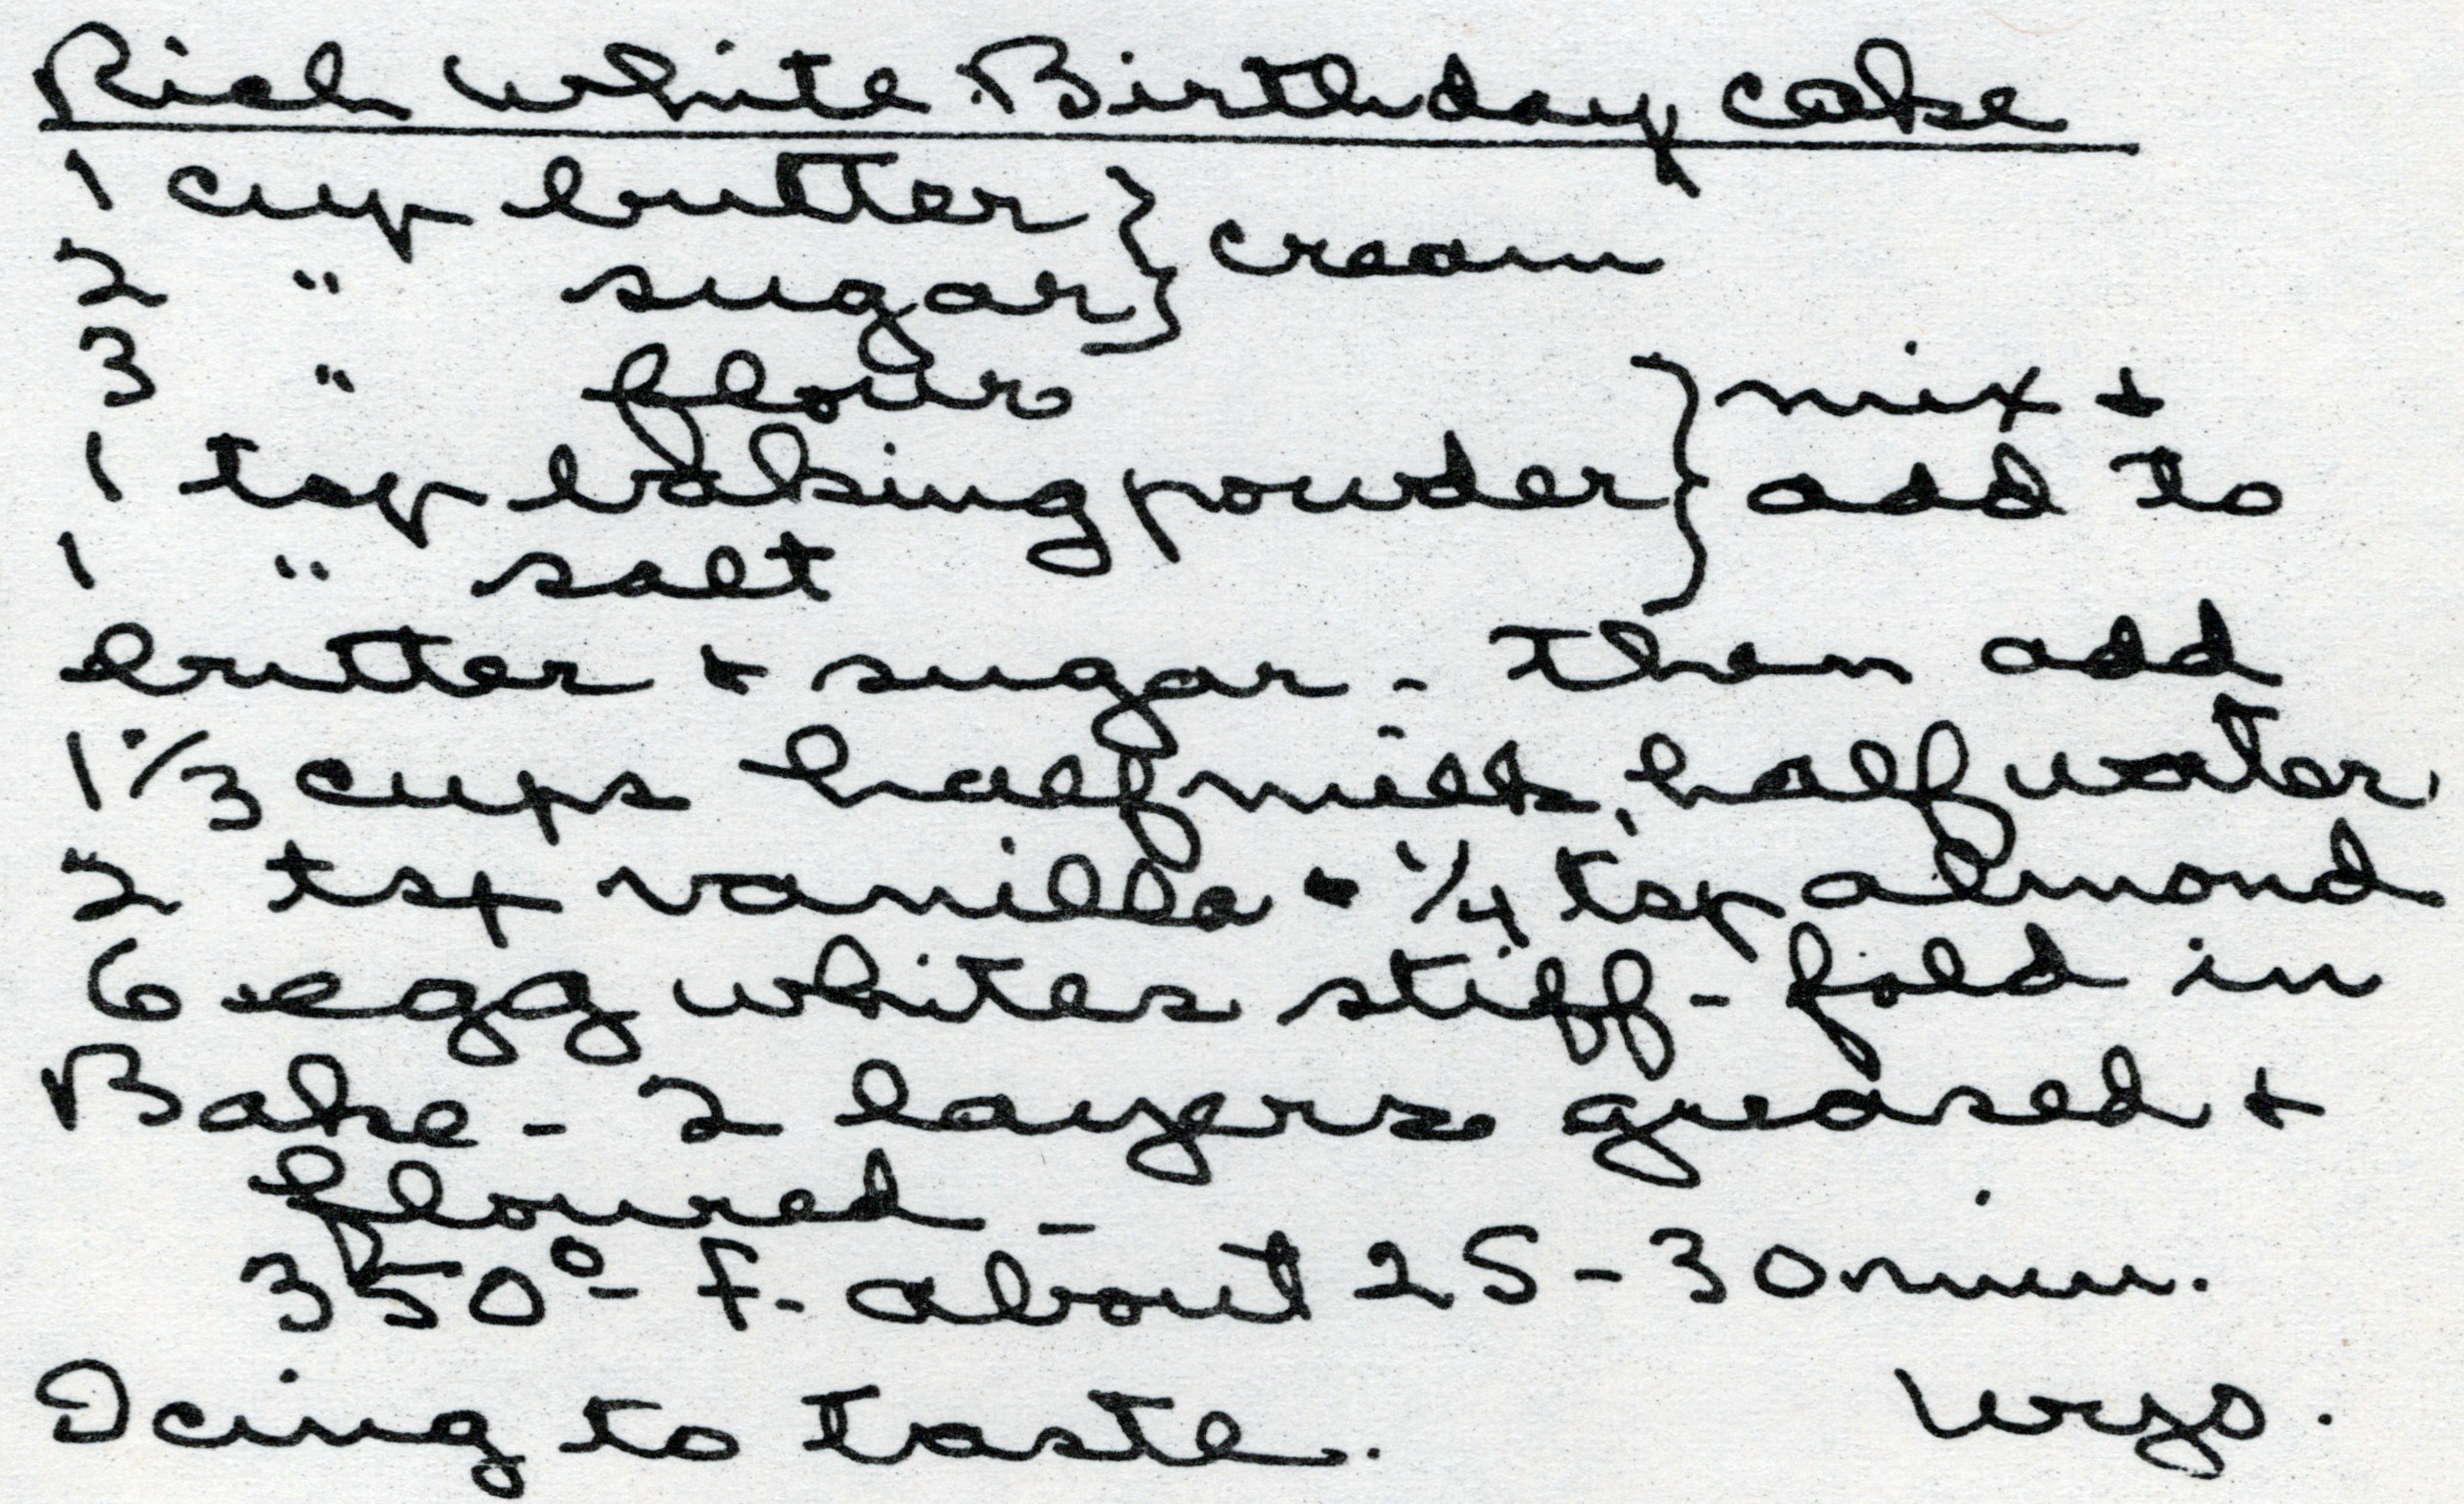 Rich White Birthday cake
1 cup butter } cream
2 " sugar }
3 " flour } mix +
1 tsp baking powder } add to
1 " salt
butter + sugar - then add
1 1/3 cups half milk, half water
2 tsp vanilla + 1/4 tsp almond
6 egg whites stiff - fold in
Bake - 2 layers greased +
floured -
350° - F. about 25 - 30 min.
Icing to taste. Wyo.